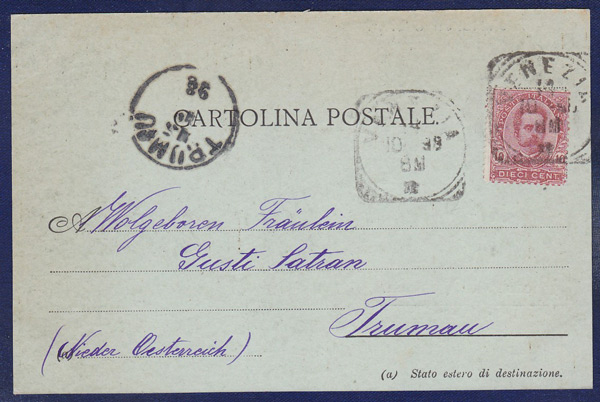 VENEZIA
98
TRUMAU
CARTOLINA POSTALE.
VENEZIA
DIECI CENT.
A Wolgeboren Fräulein
Gusti Satran
Trumau
(Nieder Oesterreich)
(a) Stato estero di destinazione.